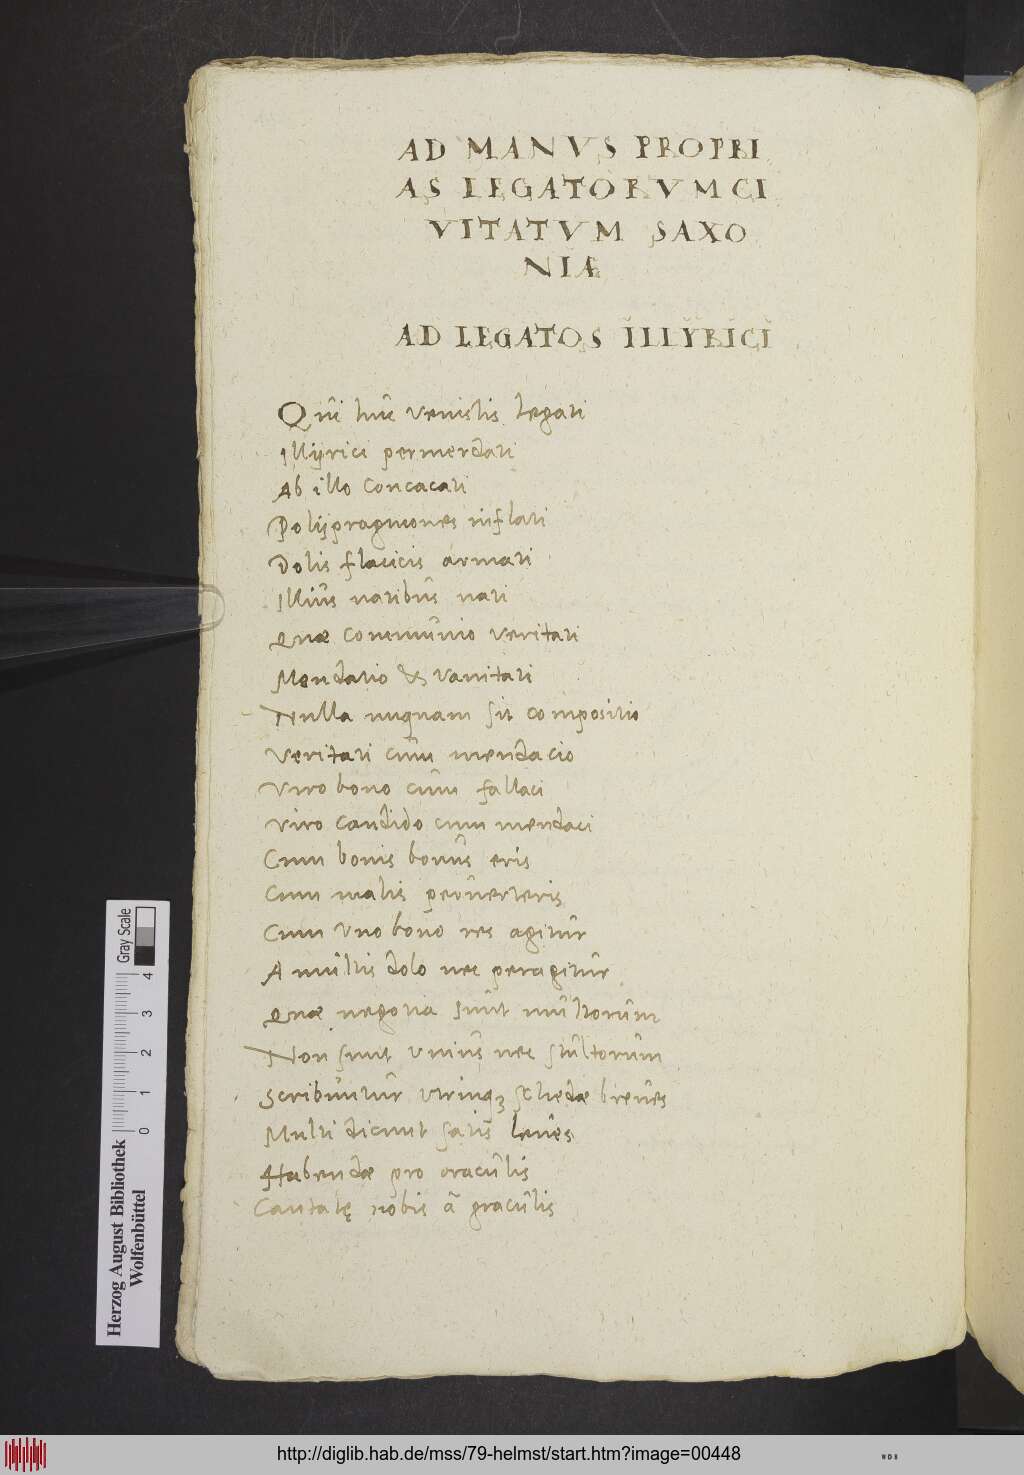 AD MANVS PROPRI
AS LEGATORVM CI
VITATVM SAXO
NIÆ
AD LEGATOS ILLYRICI
Qui huc venistis legati
Illyrici permerdati
Ab illo concacati
Polypragmones inflati
Dolis flacicis armati
Illius naribus nati
Quæ communio veritati
Mendatio & vanitati
Nulla nuquam sit compositio
Veritati cum mendacio
Viro bono cum fallaci
Viro candido cum mendaci
Cum bonis bonus eris
Cum malis peruerteris
Cum vno bono res agitur
A multis dolo nec peragitur
Quæ negotia sunt multorum
Non sunt vnius nec stultorum
Scribuntur vtrinqꝫ schedæ breues
Multi dicunt satis leues
Habendæ pro oraculis
Cantatę nobis ã graculis
Herzog August Bibliothek
Wolfenbüttel
0 1 2 3 4
Gray Scale
http://diglib.hab.de/mss/79-helmst/start.htm?image=00448